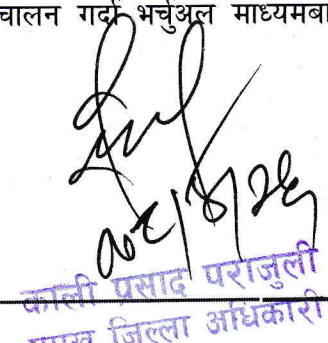 चालन गर्दा भर्चुअल माध्यमबा
काली प्रसाद पराजुली
प्रमुख जिल्ला अधिकारी